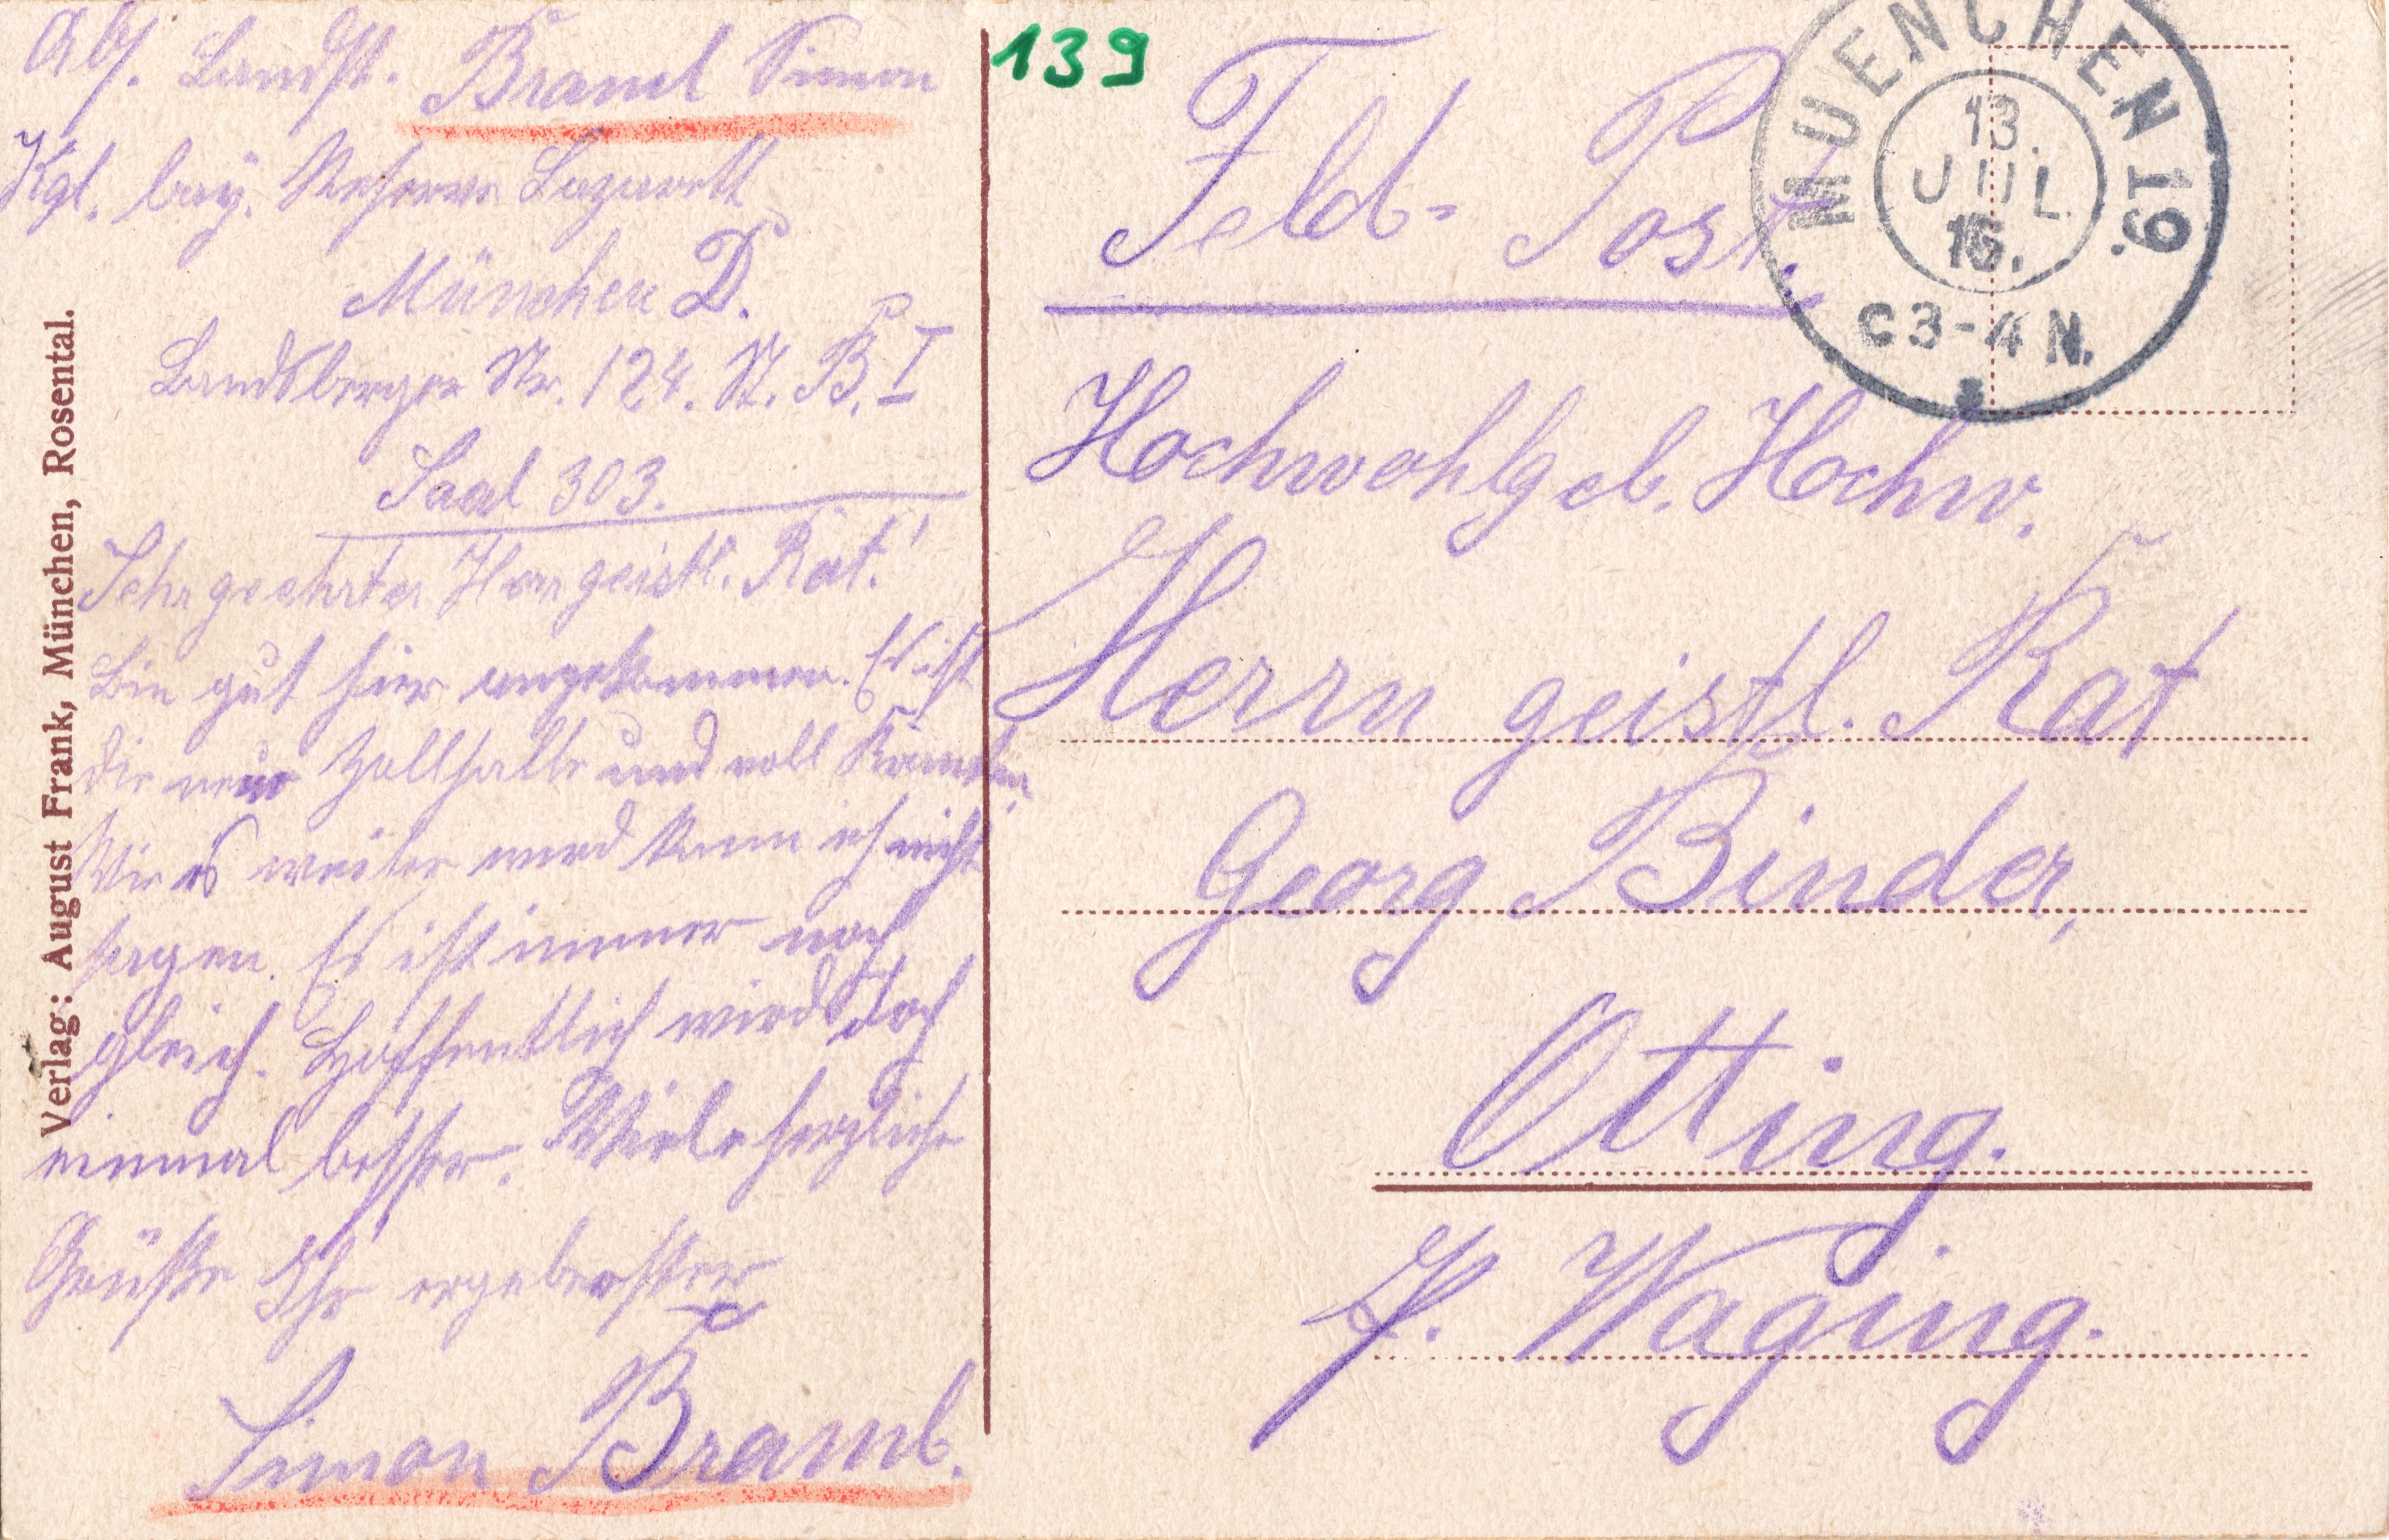 Abs. Landst. Braml Simon
Kgl. bay. Reserve Lazarett
München D.
Landsberger Str. 124. St. B. I
Saal 303.
Sehr geehrter Herr geistl. Rat!
Bin gut hier angekommen. Es ist
die neue Zollhalle und voll Kranken.
Wie es weiter wird kann ich nicht
sagen. Es ist immer noch
gleich. Hoffentlich wirds doch
einmal besser. Viele herzliche
Grüße Ihr ergebenster
Simon Braml.
Verlag: August Frank, München, Rosental.
139
Feld-Post.
MUENCHEN 19.
13.
JUL
16.
C3-4 N.
Hochwohlgeb. Hochw.
Herrn geistl. Rat
Georg Binder,
Otting.
P. Waging.